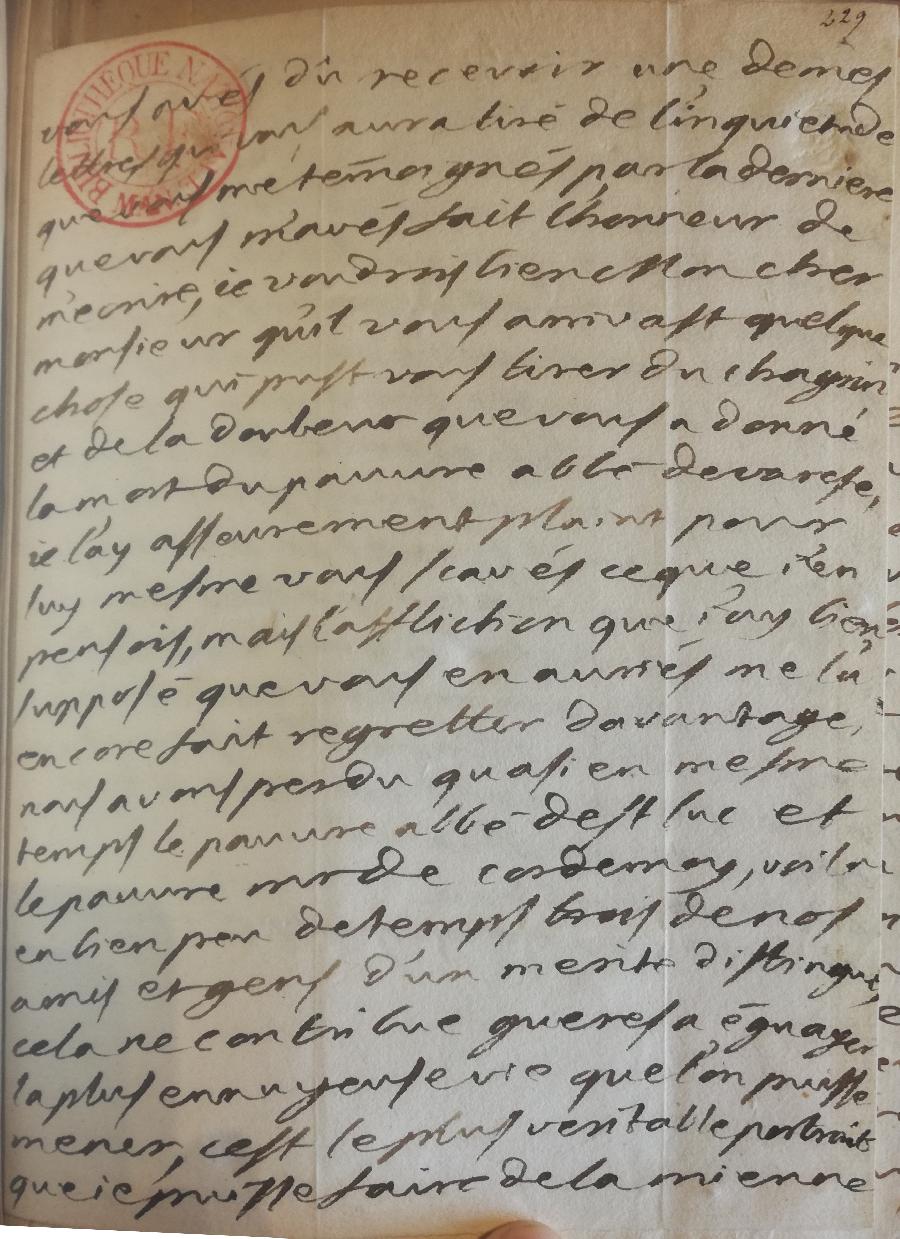 229
vous avés dû recevoir une de mes
lettres qui vous aura tiré de l'inquietude
que vous me temoignés par la derniere
que vous m'avés fait l'honneur de
m'ecrire, ie voudrois bien Mon cher
monsieur qu'il vous arrivast quelque
chose qui pust vous tirer du chagrin
et de la douleur que vous a donné
la mort du pauure abbé de varese,
ie l'ay asseurement plaint pour
luy mesme vous scavés ce que i'en
pensois, mais l'affliction que i'ay bien
supposé que vous en auriés me l'a
encore fait regretter davantage,
nous avons perdu quasi en mesme
temps le pauure abbé de st luc et
le pauure mr de cordemoy, voila
en bien peu de temps trois de nos
amis et gens d'un merite distingué,
cela ne contribue gueres a éguayer
la plus ennuyeuse vie que l'on puisse
mener, cest le plus veritable portrait
que ie puisse faire de la mienne
BIBLIOTHEQUE NATIONALE
MANUSCRITS